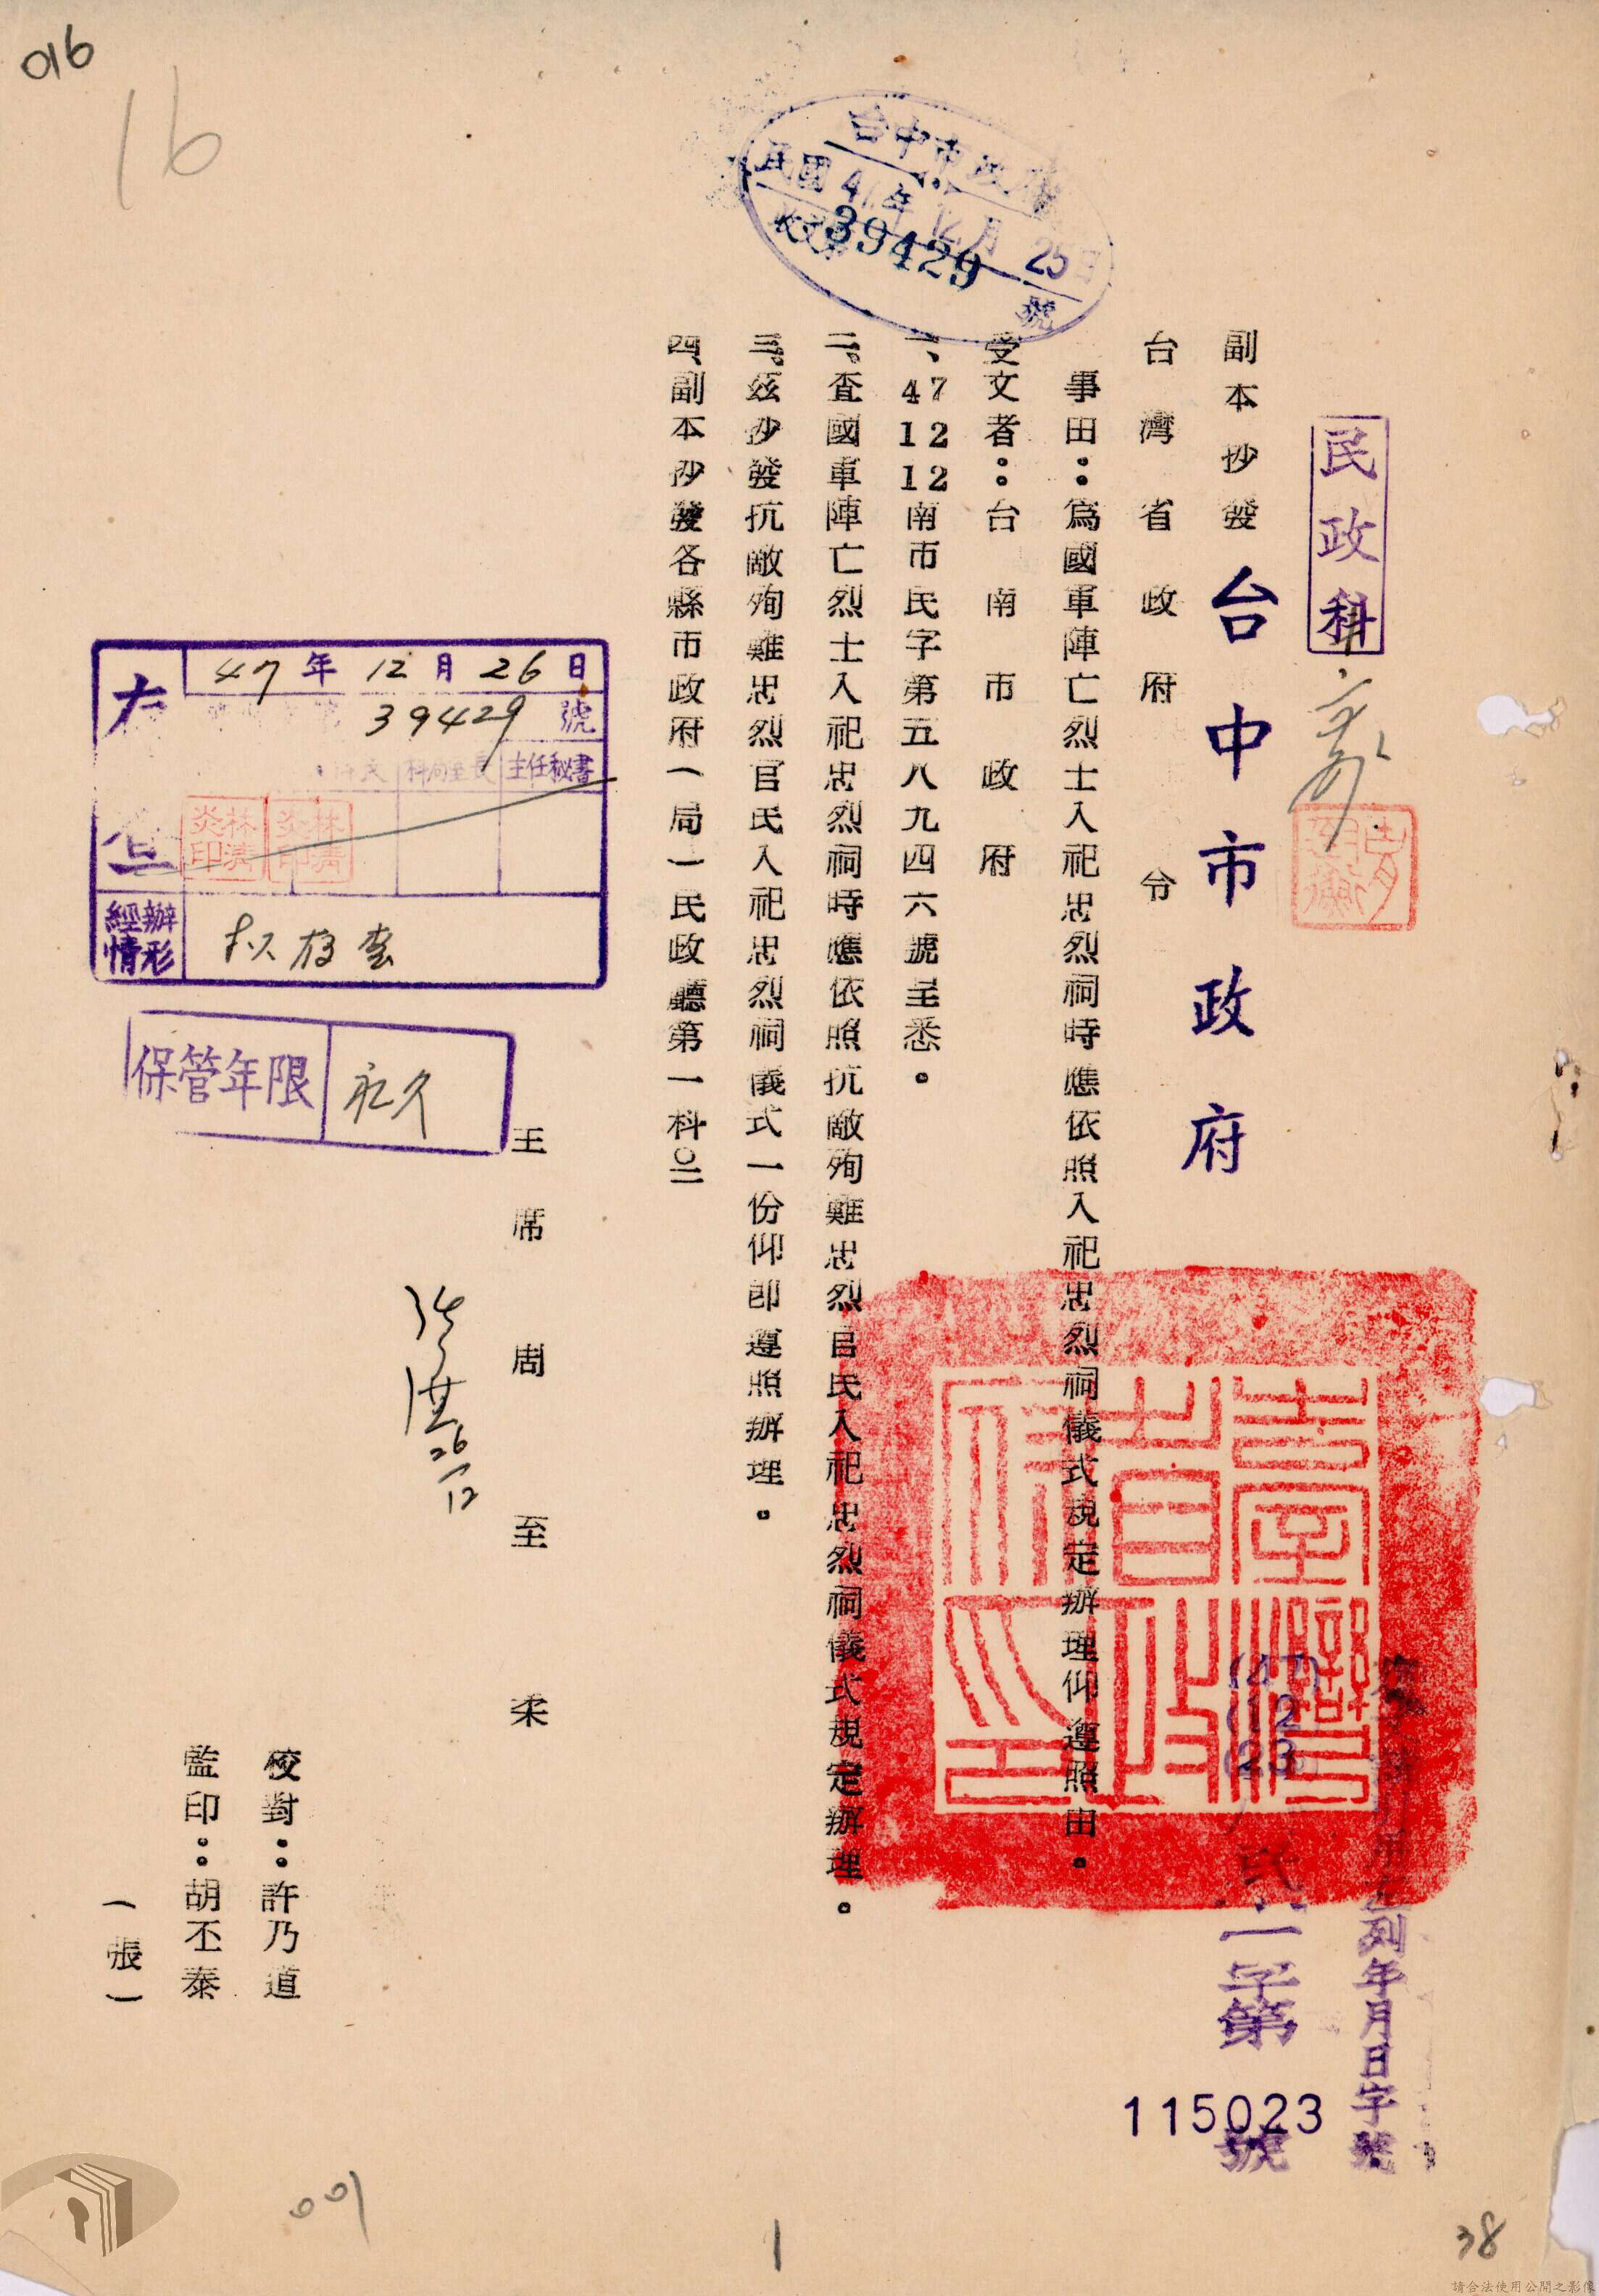 016
16
台中市政府
民國47年12月25日
收文第39429號
民政科
副本抄發
台中市政府
台灣省政府令
事由：為國軍陣亡烈士入祀忠烈祠時應依照入祀忠烈祠儀式規定辦理仰遵照由。
受文者：台南市政府
一、47 12 12南市民字第五八九四六號呈悉。
二、查國軍陣亡烈士入祀忠烈祠時應依照抗敵殉難忠烈官民入祀忠烈祠儀式規定辦理。
三、茲抄發抗敵殉難忠烈官民入祀忠烈祠儀式一份仰即遵照辦理。
四、副本抄發各縣市政府(局)民政廳第一科㈢
主席周至柔
校對：許乃道
監印：胡丕泰
(張)
臺灣省政府印
(47)
(12
(23)
民一字第
115023
號
列年月日字號
存查
47年12月26日
39429號
科局室長
主任秘書
林清炎印
林清炎印
經辦情形
擬存查
保管年限
永久
26/12
001
1
38
請合法使用公開之影像